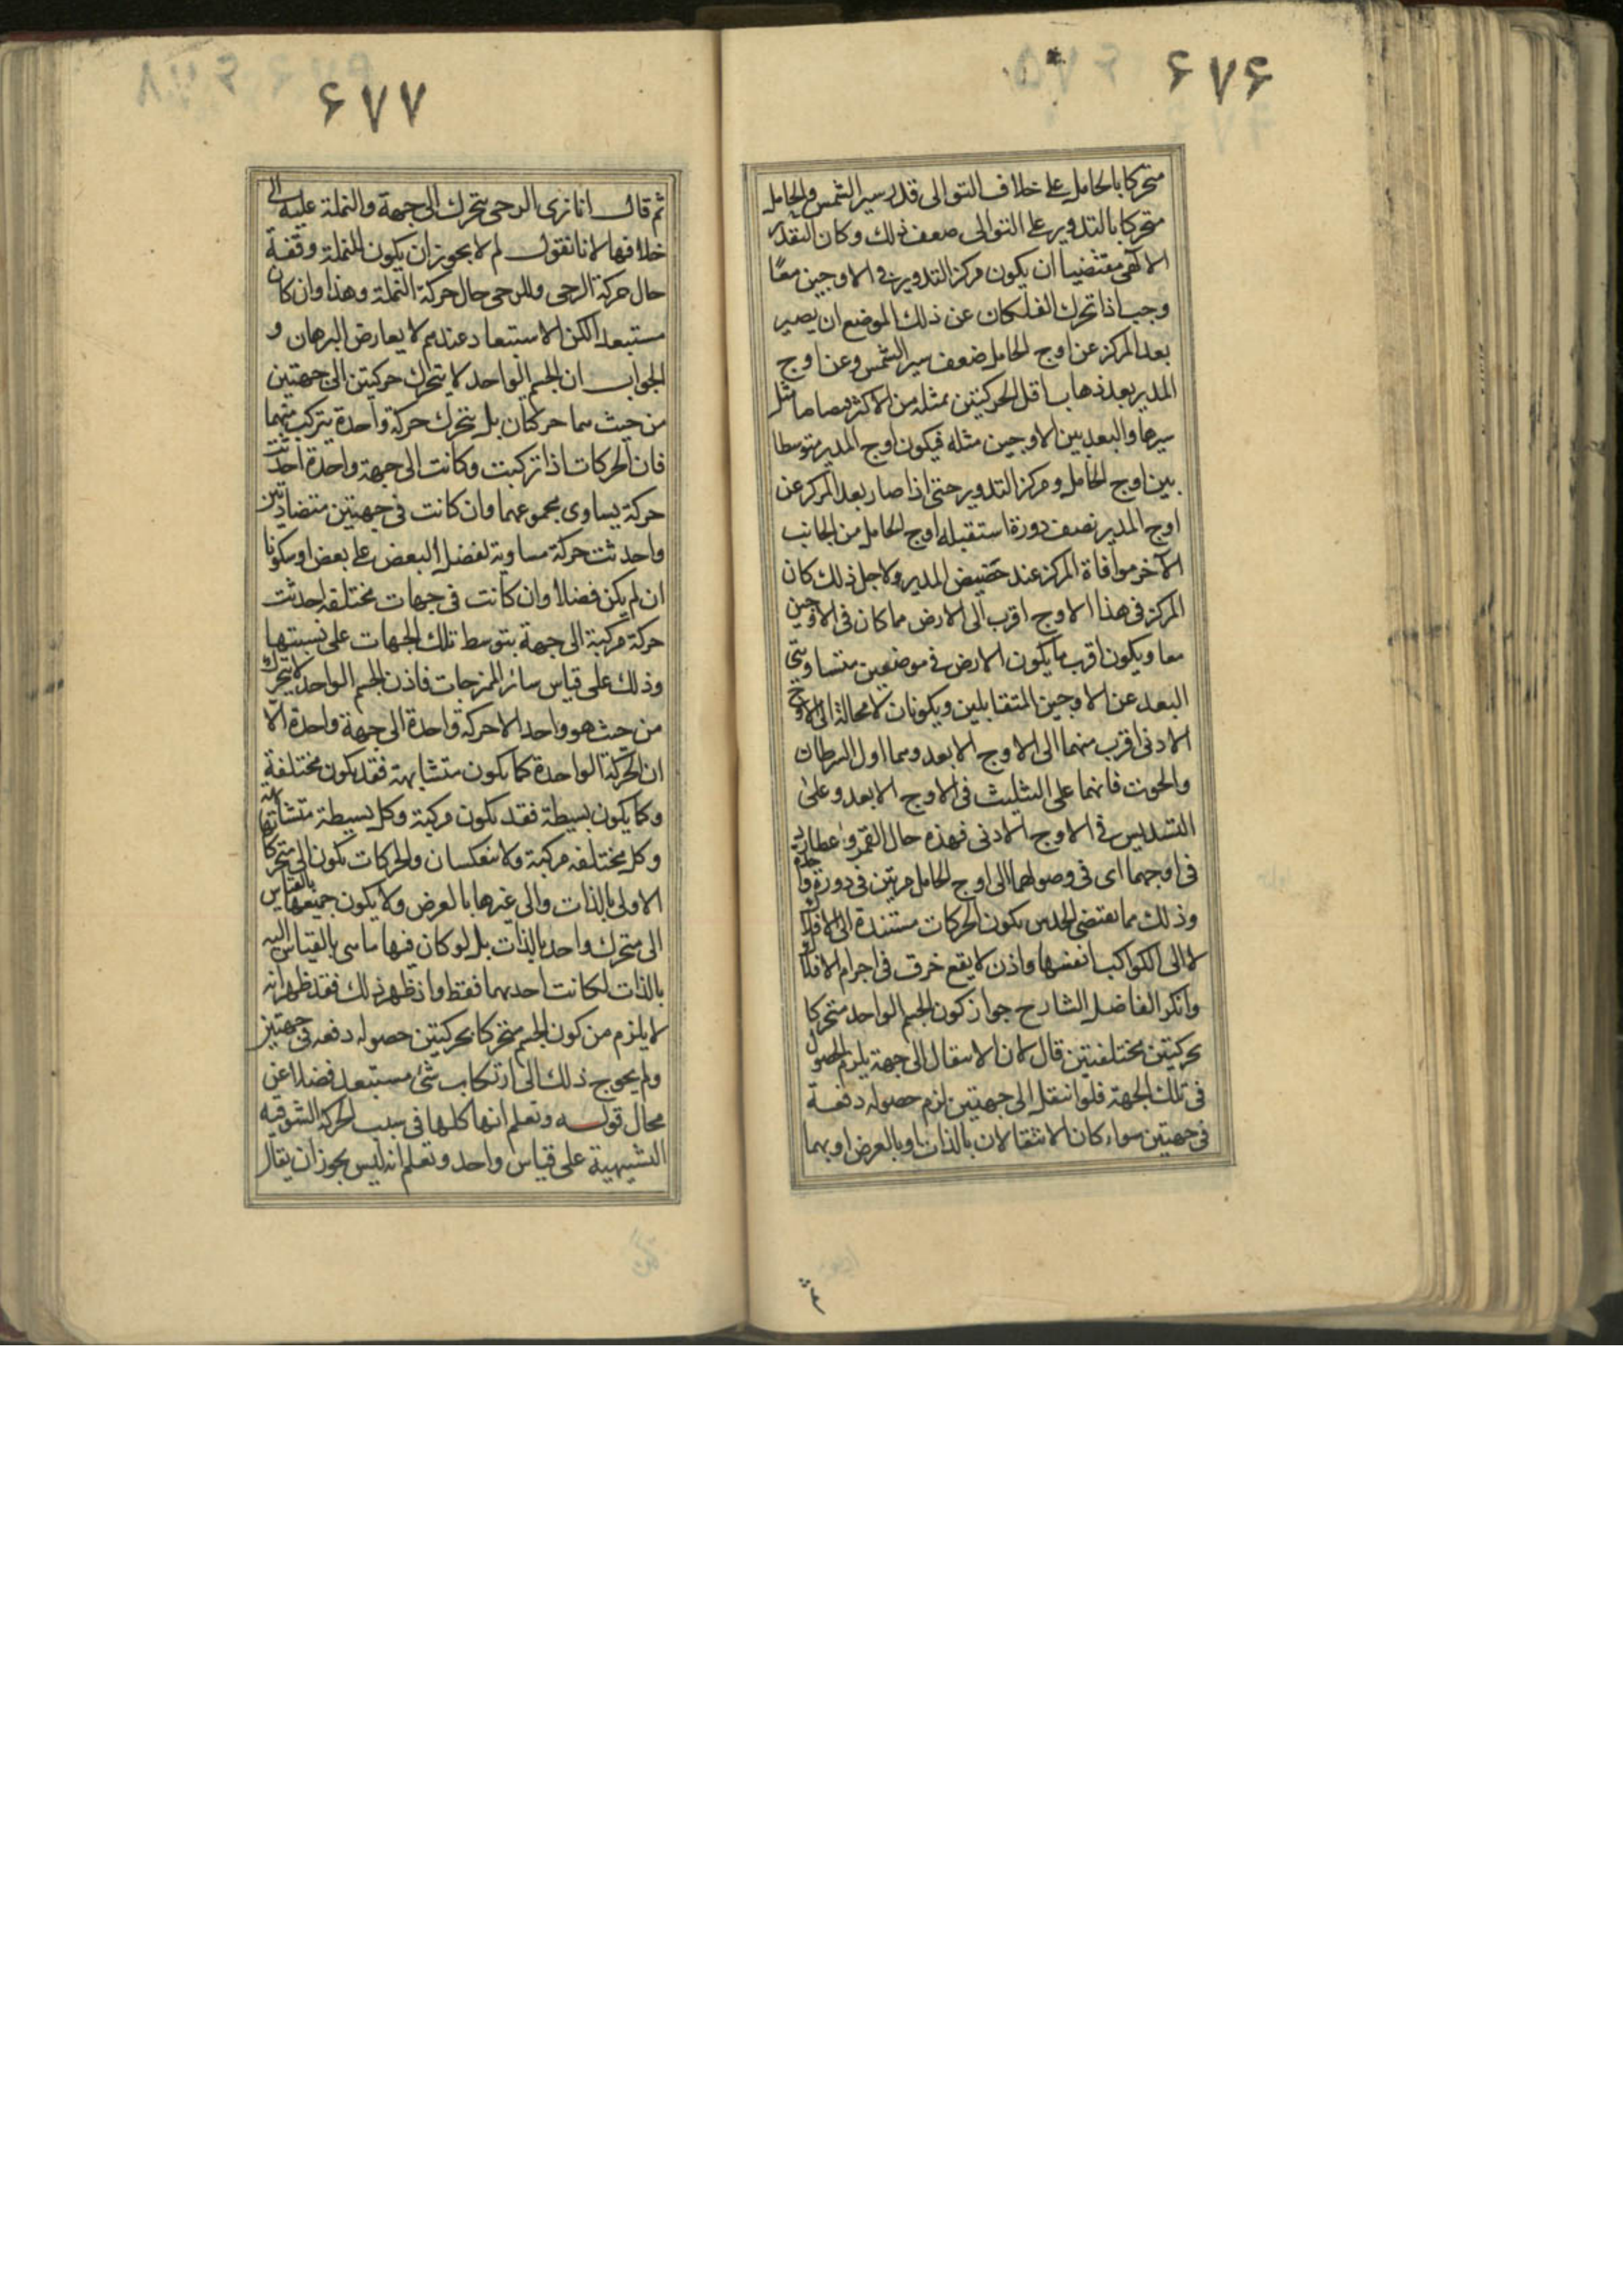 ۶۷۶
متحركا بالحامل على خلاف التوالى قدر سير الشمس والحامل
متحركا بالتدوير على التوالى ضعف ذلك وكان التقدير
الالهى مقتضيا ان يكون مركز التدوير فى الاوجين معًا
وجب اذا تحرك الفلكان عن ذلك الموضع ان يصير
بعد المركز عن اوج الحامل ضعف سير الشمس وعن اوج
المدير بعد ذهاب اقل الحركتين بمثله من الاكثر قصاصا مثل
سيرها والبعد بين الاوجين مثله فيكون اوج المدير متوسطا
بين اوج الحامل ومركز التدوير حتى اذا صار بعد المركز عن
اوج المدير نصف دورة استقبله اوج الحامل من الجانب
الآخر موافاة المركز عند حضيض المدير ولاجل ذلك كان
المركز فى هذا الاوج اقرب الى الارض مما كان فى الاوجين
معا ويكون اقرب ما يكون الارض فى موضعين متساويتى
البعد عن الاوجين المتقابلين ويكونان لا محالة الى الاوج
الادنى اقرب منهما الى الاوج الابعد وهما اول السرطان
والحوت فانهما على التثليث فى الاوج الابعد وعلى
التسديس فى الاوج الادنى فهذه حال القمر وعطارد
فى اوجهما اى فى وصولهما الى اوج الحامل مرتين فى دورة واحدة
وذلك مما يقتضى الحدس بكون الحركات مستندة الى الافلاك
لا الى الكواكب انفسها واذن لا يقع خرق فى اجرام الافلاك
وانكر الفاضل الشارح جواز كون الجسم الواحد متحركا
بحركتين مختلفتين قال لان الانتقال الى جهة يلزم الحصول
فى تلك الجهة فلو انتقل الى جهتين لزم حصوله دفعة
فى جهتين سواء كان الانتقالان بالذات او بالعرض او بهما
۶۷۷
ثم قال انا نرى الرحى يتحرك الى جهة والنملة عليه الى
خلافها لانا نقول لم لا يجوز ان يكون للنملة وقفة
حال حركة الرحى وللرحى حال حركة النملة وهذا وان كان
مستبعدا لكن الاستبعاد عندهم لا يعارض البرهان و
الجواب ان الجسم الواحد لا يتحرك حركتين الى جهتين
من حيث هما حركتان بل يتحرك حركة واحدة يتركب منهما
فان الحركات اذا تركبت وكانت الى جهة واحدة احدثت
حركة يساوى مجموعهما وان كانت فى جهتين متضادتين
واحدثت حركة مساوية لفضل البعض على بعض او سكونا
ان لم يكن فضلا وان كانت فى جهات مختلفه احدثت
حركة مركبة الى جهة يتوسط تلك الجهات على نسبتها
وذلك على قياس سائر الممزجات فاذن الجسم الواحد لا يتحرك
من حيث هو واحد الا حركة واحدة الى جهة واحدة الا
ان الحركة الواحدة كما يكون متشابهة فقد يكون مختلفة
وكما يكون بسيطة فقد يكون مركبة وكل بسيطة متشابهة
وكل مختلفه مركبة ولا ينعكسان والحركات يكون الى متحركا
الاولى بالذات والى غيرها بالعرض ولا يكون جميعها بالقياس
الى متحرك واحد بالذات بل لو كان فيها ما سى بالقياس اليه
بالذات لكانت احديهما فقط واذ ظهر ذلك فقد ظهر انه
لا يلزم من كون الجسم متحركا بحركتين حصوله دفعه فى جهتين
ولم يحوج ذلك الى ارتكاب شئ مستبعد فضلا عن
محال قوله وتعلم انها كلها فى سبب الحركة الشوقيه
التشبيهية على قياس واحد وتعلم انه ليس يجوز ان يقال